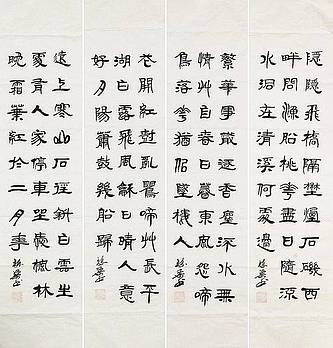 隱隱飛橋隔野煙石磯西
畔問漁船桃華盡日隨流
水洞在清溪何處邊
繁華事散逐香塵流水無
情艸自春日暮東風怨啼
鳥落華猶佀墜樓人
花開紅樹亂鶯啼艸長平
湖白鷺飛風龢日晴人意
好夕陽簫鼓幾船歸
遠上寒山石徑斜白雲生
處有人家停車坐愛楓林
晚霜葉紅於二月華